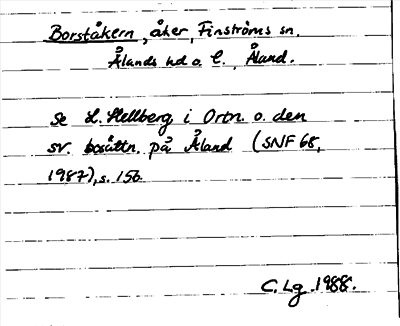 Borståkern, åker, Finströms sn.
Ålands hd o. l., Åland.
se L. Hellberg i Ortn. o. den
sv. bosättn. på Åland (SNF 68,
1987), s. 156.
C. Lg. 1988.